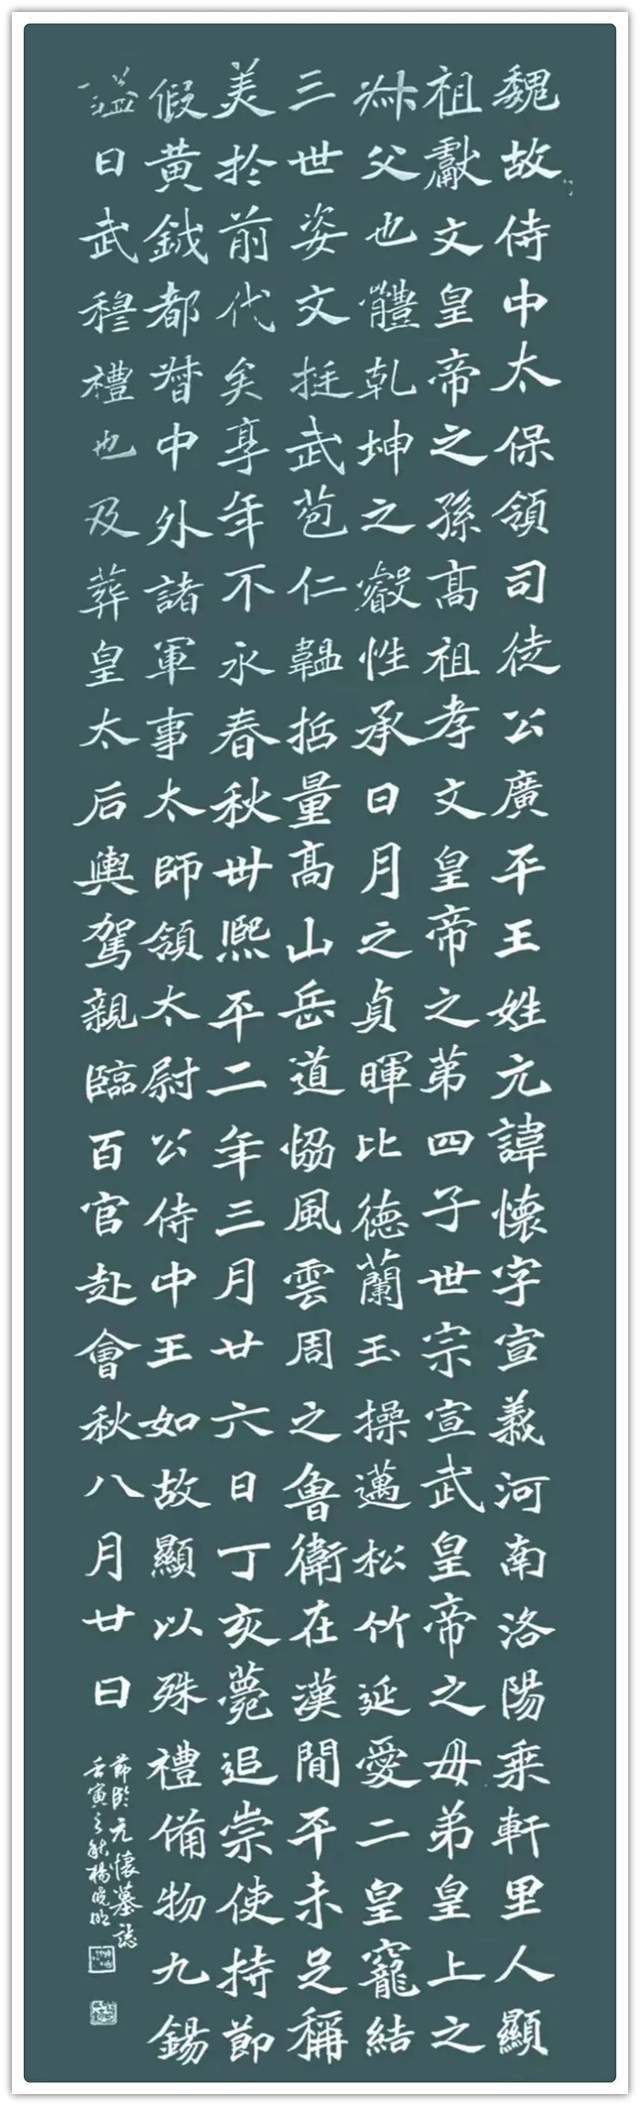 魏故侍中太保領司徒公廣平王姓元諱懷字宣義河南洛陽乘軒里人顯
祖獻文皇帝之孫高祖孝文皇帝之第四子世宗宣武皇帝之母弟皇上之
叔父也體乾坤之叡性承日月之貞暉比德蘭玉操邁松竹延愛二皇寵結
三世姿文挺武苞仁韞哲量高山岳道協風雲周之魯衛在漢間平未足稱
美於前代矣享年不永春秋卅熙平二年三月廿六日丁亥薨追崇使持節
假黄鉞都督中外諸軍事太師領太尉公侍中王如故顯以殊禮備物九錫
謚曰武穆禮也及葬皇太后輿駕親臨百官赴會秋八月廿日
節臨元懷墓誌
壬寅之秋楊曉